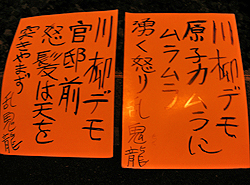 川柳デモ
原子力ムラに
ムラムラ
湧く怒り 乱鬼龍
川柳デモ
官邸前
怒髪は天を
突きやます
乱鬼龍